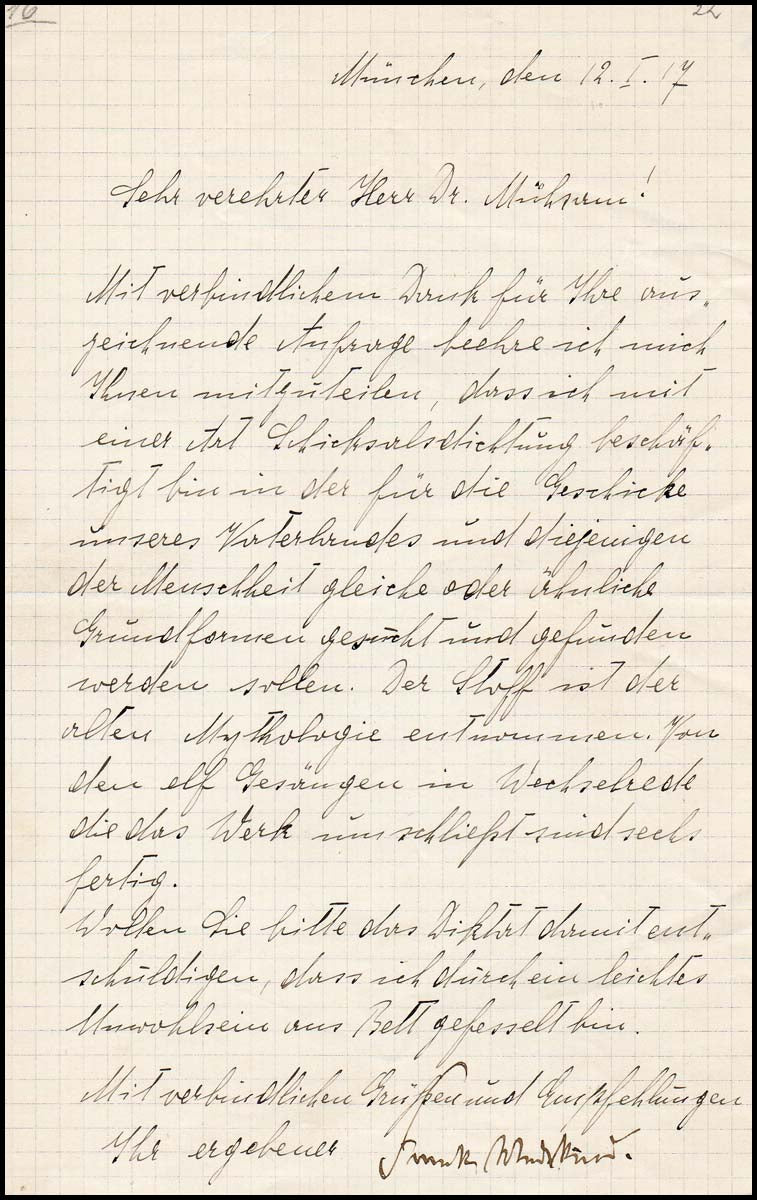 16
22
München, den 12. I. 17
Sehr verehrter Herr Dr. Mühsam!
Mit verbindlichem Dank für Ihre aus„
zeichnende Anfrage beehre ich mich
Ihnen mitzuteilen, dass ich mit
einer Art Schicksalsdichtung beschäf„
tigt bin in der für die Geschicke
unseres Vaterlandes und diejenigen
der Menschheit gleiche oder ähnliche
Grundformen gesucht und gefunden
werden sollen. Der Stoff ist der
alten Mythologie entnommen. Von
den elf Gesängen in Wechselrede
die das Werk umschließt sind sechs
fertig.
Wollen Sie bitte das Diktat damit ent„
schuldigen, dass ich durch ein leichtes
Unwohlsein ans Bett gefesselt bin.
Mit verbindlichen Grüßen und Empfehlungen
Ihr ergebener Frank Wedekind.